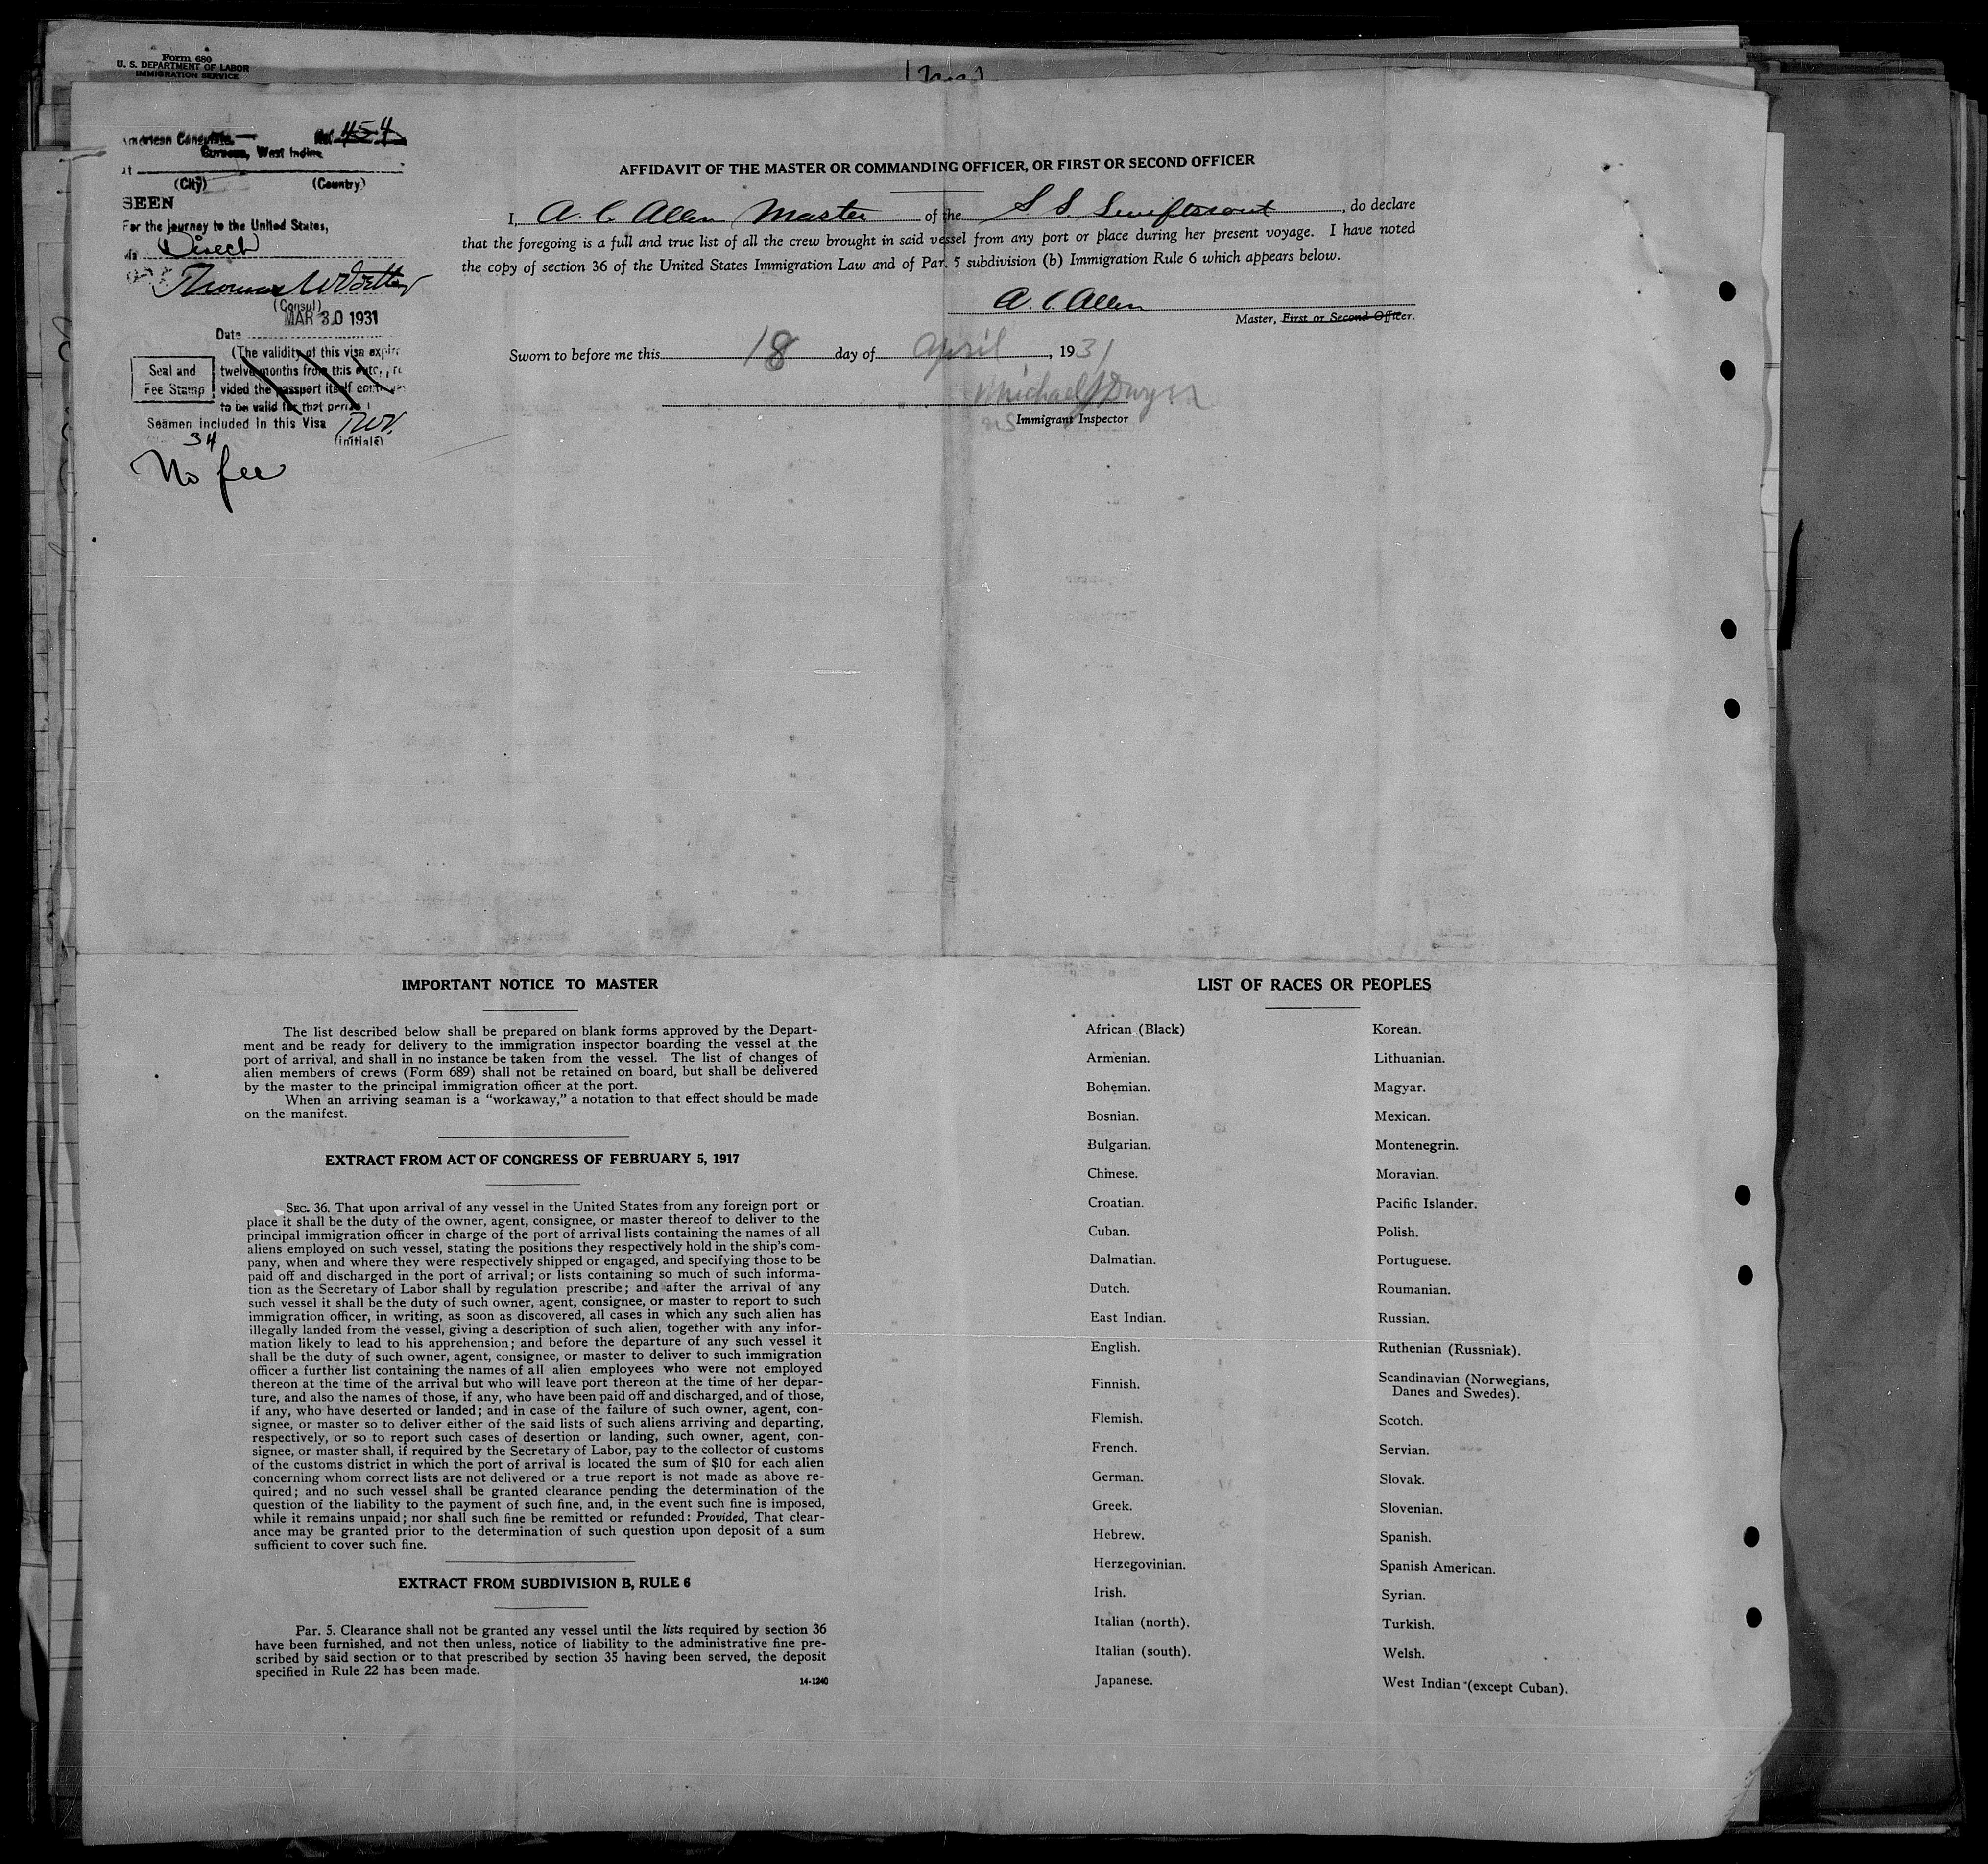 Form 680
U. S. DEPARTMENT OF LABOR
IMMIGRATION SERVICE
American
No. 454
Curacao, West Indies
at
(City) (Country)
SEEN
For the journey to the United States,
via Direct
Thomas
(Consul)
MAR 30 1931
Date
(The validity of this visa expires
twelve months from this date, pro
vided the passport itself continues
to be valid for that period)
Seal and
Fee Stamp
Seamen included in this Visa
34
(initials)
No fee
AFFIDAVIT OF THE MASTER OR COMMANDING OFFICER, OR FIRST OR SECOND OFFICER
I, A. C. Allen Master of the S S. Swiftscout, do declare
that the foregoing is a full and true list of all the crew brought in said vessel from any port or place during her present voyage. I have noted
the copy of section 36 of the United States Immigration Law and of Par. 5 subdivision (b) Immigration Rule 6 which appears below.
A. C. Allen
Master, First or Second Officer.
Sworn to before me this 18 day of April, 1931
Michael J Dwyer
US Immigrant Inspector
IMPORTANT NOTICE TO MASTER
The list described below shall be prepared on blank forms approved by the Depart-
ment and be ready for delivery to the immigration inspector boarding the vessel at the
port of arrival, and shall in no instance be taken from the vessel. The list of changes of
alien members of crews (Form 689) shall not be retained on board, but shall be delivered
by the master to the principal immigration officer at the port.
When an arriving seaman is a “workaway,” a notation to that effect should be made
on the manifest.
EXTRACT FROM ACT OF CONGRESS OF FEBRUARY 5, 1917
SEC. 36. That upon arrival of any vessel in the United States from any foreign port or
place it shall be the duty of the owner, agent, consignee, or master thereof to deliver to the
principal immigration officer in charge of the port of arrival lists containing the names of all
aliens employed on such vessel, stating the positions they respectively hold in the ship's com-
pany, when and where they were respectively shipped or engaged, and specifying those to be
paid off and discharged in the port of arrival; or lists containing so much of such informa-
tion as the Secretary of Labor shall by regulation prescribe; and after the arrival of any
such vessel it shall be the duty of such owner, agent, consignee, or master to report to such
immigration officer, in writing, as soon as discovered, all cases in which any such alien has
illegally landed from the vessel, giving a description of such alien, together with any infor-
mation likely to lead to his apprehension; and before the departure of any such vessel it
shall be the duty of such owner, agent, consignee, or master to deliver to such immigration
officer a further list containing the names of all alien employees who were not employed
thereon at the time of the arrival but who will leave port thereon at the time of her depar-
ture, and also the names of those, if any, who have been paid off and discharged, and of those,
if any, who have deserted or landed; and in case of the failure of such owner, agent, con-
signee, or master so to deliver either of the said lists of such aliens arriving and departing,
respectively, or so to report such cases of desertion or landing, such owner, agent, con-
signee, or master shall, if required by the Secretary of Labor, pay to the collector of customs
of the customs district in which the port of arrival is located the sum of $10 for each alien
concerning whom correct lists are not delivered or a true report is not made as above re-
quired; and no such vessel shall be granted clearance pending the determination of the
question of the liability to the payment of such fine, and, in the event such fine is imposed,
while it remains unpaid; nor shall such fine be remitted or refunded: Provided, That clear-
ance may be granted prior to the determination of such question upon deposit of a sum
sufficient to cover such fine.
EXTRACT FROM SUBDIVISION B, RULE 6
Par. 5. Clearance shall not be granted any vessel until the lists required by section 36
have been furnished, and not then unless, notice of liability to the administrative fine pre-
scribed by said section or to that prescribed by section 35 having been served, the deposit
specified in Rule 22 has been made.
14-1240
LIST OF RACES OR PEOPLES
African (Black)
Armenian.
Bohemian.
Bosnian.
Bulgarian.
Chinese.
Croatian.
Cuban.
Dalmatian.
Dutch.
East Indian.
English.
Finnish.
Flemish.
French.
German.
Greek.
Hebrew.
Herzegovinian.
Irish.
Italian (north).
Italian (south).
Japanese.
Korean.
Lithuanian.
Magyar.
Mexican.
Montenegrin.
Moravian.
Pacific Islander.
Polish.
Portuguese.
Roumanian.
Russian.
Ruthenian (Russniak).
Scandinavian (Norwegians,
Danes and Swedes).
Scotch.
Servian.
Slovak.
Slovenian.
Spanish.
Spanish American.
Syrian.
Turkish.
Welsh.
West Indian (except Cuban).